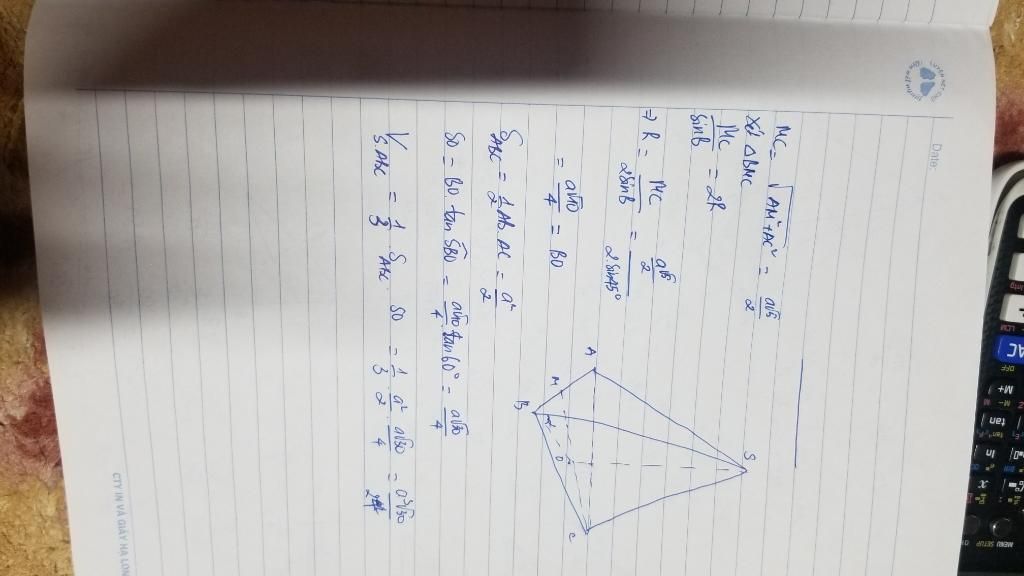 Date:
MC = √AM²+AC² = a√5/2
Xét △BMC
MC/sinB = 2R
⇒ R = MC/2sinB = a√5/2 / 2sin45°
= a√10/4 = BO
S_ABC = 1/2 AB.AC = a²/2
SO = BO.tan SBO = a√10/4.tan60° = a√30/4
V_S.ABC = 1/3 . S_ABC . SO = 1/3 . a²/2 . a√30/4 = a³√30/
S
A
M
B
O
C
CTY IN VÀ GIẤY HẠ LON
AC
OFF
M+
tan
ln
x
MENU
SETUP